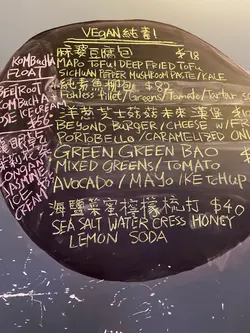 VEGAN 純素!
麻婆豆腐包 $78
MAPO TOFU/DEEP FRIED TOFU
SICHUAN PEPPER MUSHROOM PASTE/KALE
純素魚柳包 $82
Fishless fillet/Greens/Tomato/Tartar
洋葱芝士菇菇未來漢堡
BEYOND BURGER/CHEESE
PORTOBELLO/CARAMELIZED ONION
GREEN GREEN BAO
MIXED GREENS/TOMATO
AVOCADO/MAYO/KETCHUP
海鹽菜蜜檸檬梳打 $40
SEA SALT WATER CRESS HONEY
LEMON SODA
KOMBUCHA
FLOAT
BEETROOT
KOMBUCHA
ROSE ICE CREAM
$56
JASMINE
ICE
CREAM